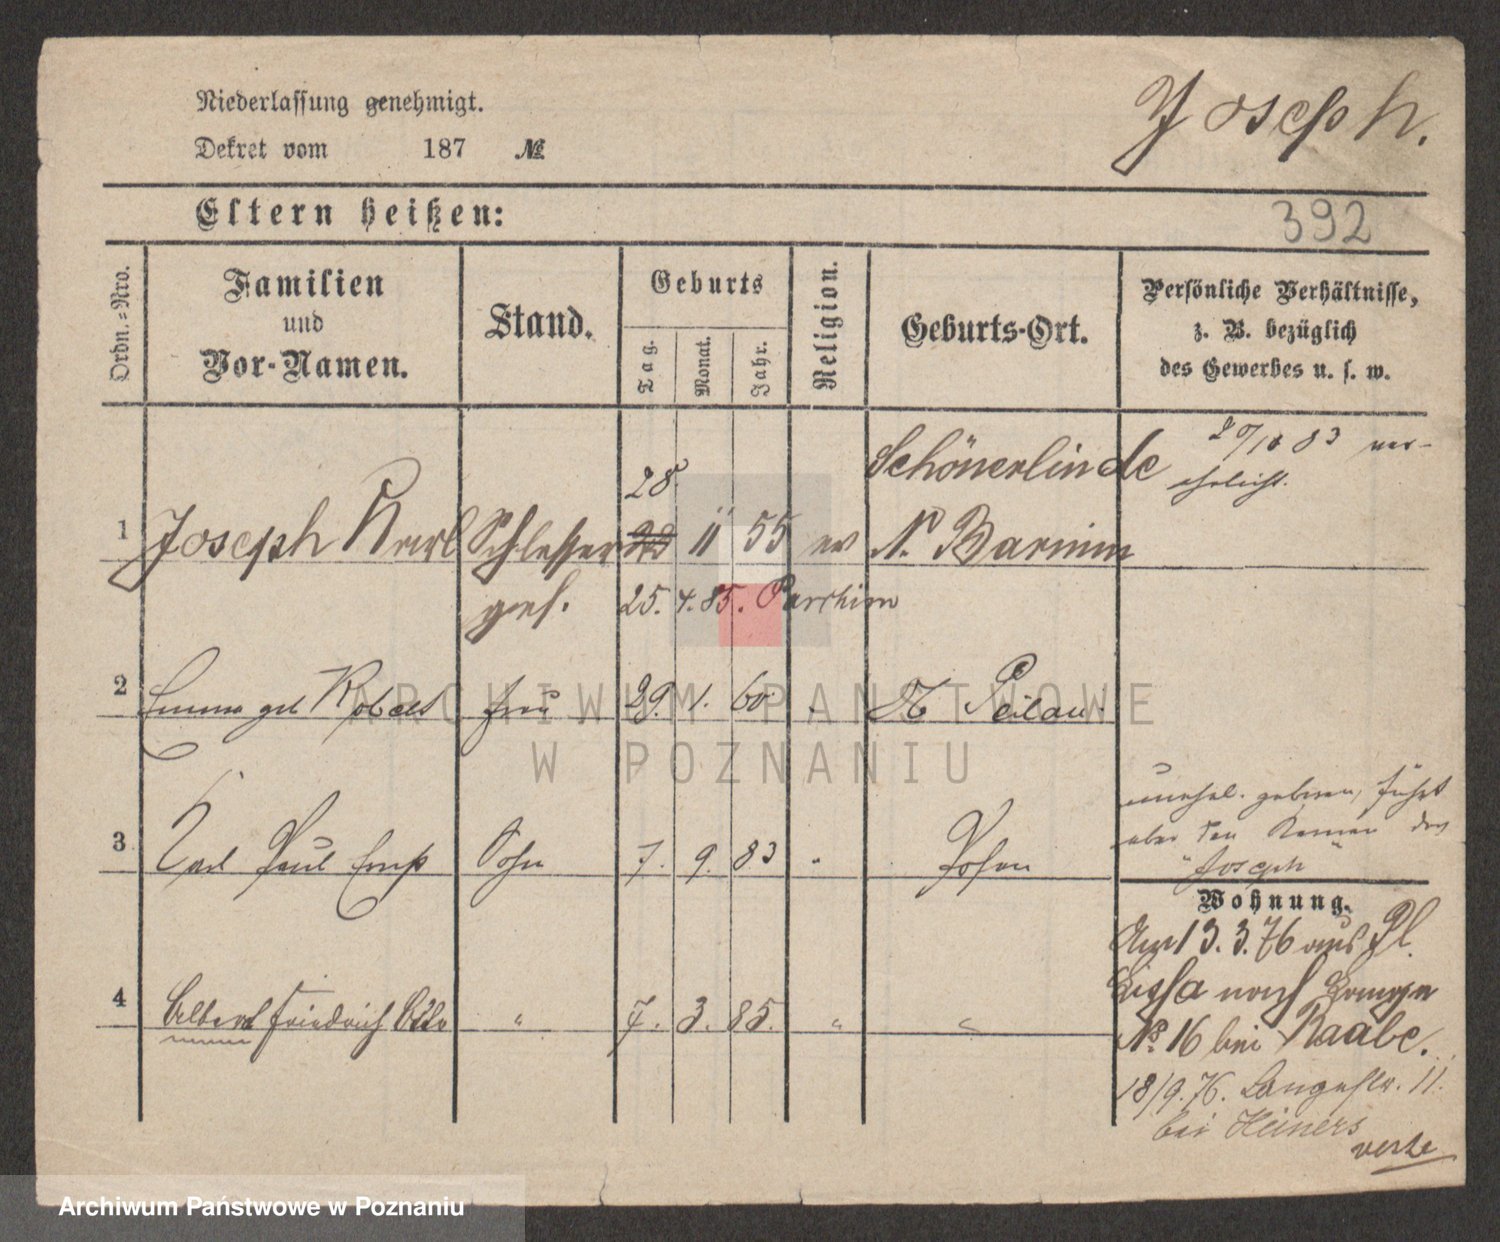 Niederlassung genehmigt.
Dekret vom 187 №
Joseph.
392
Eltern heißen:
Ordn.-Nro.
Familien
und
Vor-Namen.
Stand.
Geburts
Tag.
Monat.
Jahr.
Religion.
Geburts-Ort.
Persönliche Verhältnisse,
z. B. bezüglich
des Gewerbes u. s. w.
1 Joseph Karl Schlosser
ges.
28
11 55 ev
Schönerlinde
N. Barnim
25. 4. 85. Parchim
83 ver-
ehelicht.
2 Emma geb Frau 29. 1. 60. Peilau
3 Carl Paul Ernst Sohn 7. 9. 83 " Posen
unehel. geboren, führt
aber den Namen des
"Joseph"
4 Albert Friedrich " 7. 3. 85. " "
Wohnung.
Am 13. 3. 76 aus Pl.
Lissa nach
No. 16 bei Raabe.
18/9. 76. Langestr. 11.
bei Heiners
verte
ARCHIWUM PAŃSTWOWE
W POZNANIU
Archiwum Państwowe w Poznaniu